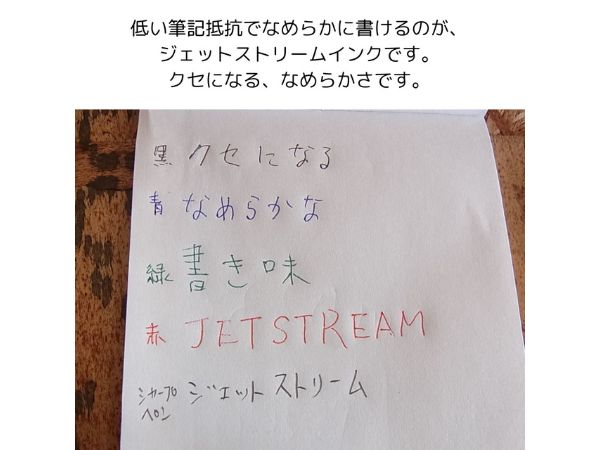 低い筆記抵抗でなめらかに書けるのが、
ジェットストリームインクです。
クセになる、なめらかさです。
黒 クセになる
青 なめらかな
緑 書き味
赤 JETSTREAM
シャープ ジェットストリーム
ペン